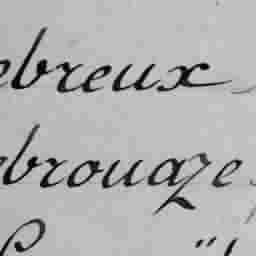 ebreux
ebrouaze